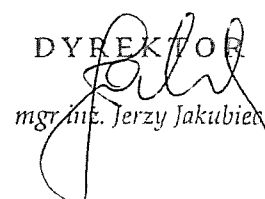 DYREKTOR
mgr inż. Jerzy Jakubiec